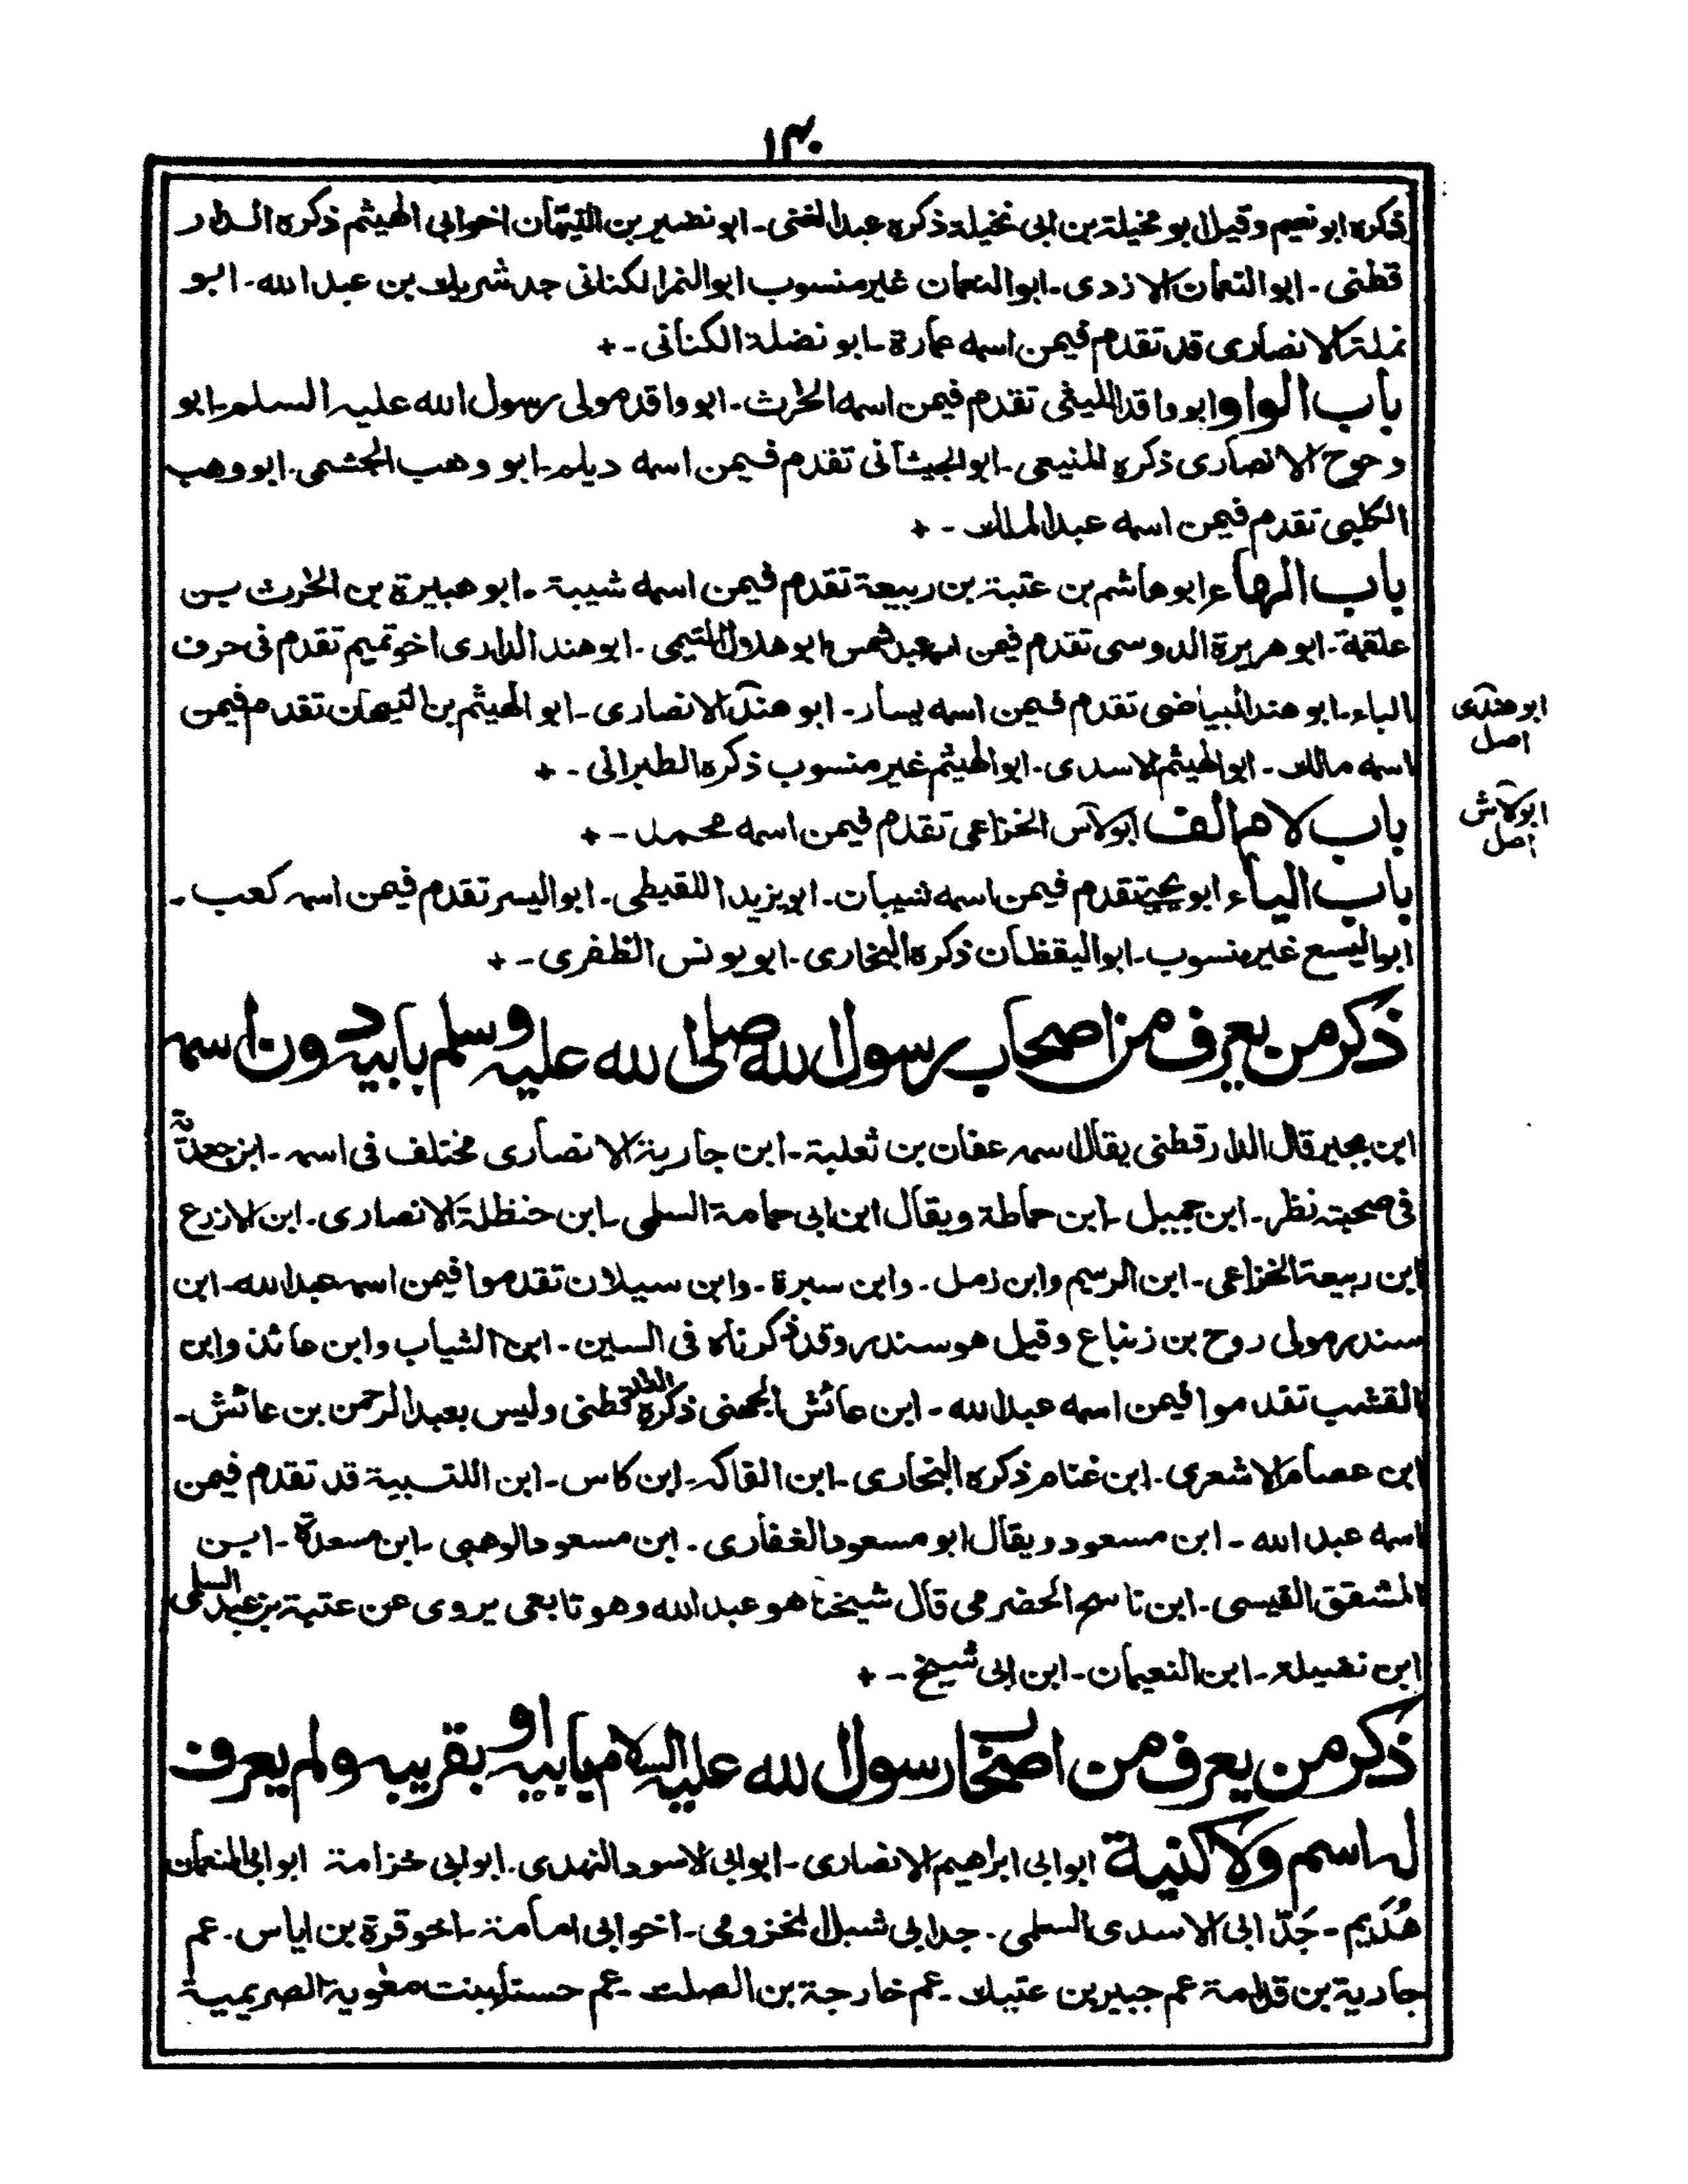 ۱۴۰
ذكره ابو نعيم وقيل ابو مخيلة بن ابى نخيلة ذكره عبد الغنى - ابو نضير بن التيهان اخو ابى الهيثم ذكره الدار
قطنى - ابو النعمان الازدى - ابو النعمان غير منسوب ابو النمر الكنانى جد شريك بن عبد الله - ابو
نملة الانصارى قد تقدم فيمن اسمه عمارة - ابو نضلة الكنانى - +
باب الواو ابو واقد الليثى تقدم فيمن اسمه الحرث - ابو واقد مولى رسول الله عليه السلم - ابو
وحوح الانصارى ذكره المنيعى - ابو الجيشانى تقدم فيمن اسمه ديلم - ابو وهب الجشمى - ابو وهب
الكلبى تقدم فيمن اسمه عبد الملك - +
باب الهاء ابو هاشم بن عتبة بن ربيعة تقدم فيمن اسمه شيبة - ابو هبيرة بن الحرث بن
علقمة - ابو هريرة الدوسى تقدم فيمن اسمه عبد شمس ابو هلال التيمى - ابو هند الدارى اخو تميم تقدم فى حرف
الباء - ابو هند البياضى تقدم فيمن اسمه يسار - ابو هند الانصارى - ابو الهيثم بن التيهان تقدم فيمن
ابو هندى
اصل
اسمه مالك - ابو الهيثم الاسدى - ابو الهيثم غير منسوب ذكره الطبرانى - +
باب لام الف ابو لاس الخزاعى تقدم فيمن اسمه محمد - +
ابو لاش
اصل
باب الياء ابو يحيى تقدم فيمن اسمه شيبان - ابو يزيد اللقيطى - ابو اليسر تقدم فيمن اسمه كعب -
ابو اليسع غير منسوب - ابو اليقظان ذكره البخارى - ابو يونس الظفرى - +
ذكر من يعرف من اصحاب رسول الله صلى الله عليه وسلم بابيه دون اسمه
ابن بجير قال الدارقطنى يقال اسمه عفان بن ثعلبة - ابن جارية الانصارى مختلف فى اسمه - ابن جعدبة
فى صحبته نظر - ابن جميل - ابن حماطة ويقال ابن ابى حمامة السلمى - ابن حنظلة الانصارى - ابن الازرع
ابن ربيعة الخزاعى - ابن الرسيم وابن زمل - وابن سبرة - وابن سيلان تقدموا فيمن اسمه عبد الله - ابن
سندر مولى روح بن زنباع وقيل هو سندر وقد ذكرناه فى السين - ابن الشياب وابن عائذ وابن
القشب تقدموا فيمن اسمه عبد الله - ابن عائش الجهنى ذكره الدارقطنى وليس بعبد الرحمن بن عائش -
ابن عصام الاشعرى - ابن غنام ذكره البخارى - ابن الفاكه - ابن كاس - ابن اللتبية قد تقدم فيمن
اسمه عبد الله - ابن مسعود ويقال ابو مسعود الغفارى - ابن مسعود الوهبى - ابن مسعدة - ابن
المشقق القيسى - ابن ناسح الحضرمى قال شيخنا هو عبد الله وهو تابعى يروى عن عتبة بن عبد السلمى
ابن نضيلة - ابن النعيمان - ابن ابى شيخ - +
ذكر من يعرف من اصحاب رسول الله عليه السلام بابيه او بقريبه ولم يعرف
له اسم ولا كنية ابو ابى ابراهيم الانصارى - ابو ابى الاسود النهدى - ابو ابى خزامة ابو ابى النعمان
هُدَيم - جَدّ ابى الاسدى السلمى - جد ابى شبل المخزومى - اخو ابى امامة - اخو قرة بن اياس - عم
جارية بن قدامة عم جبير بن عتيك - عم خارجة بن الصلت - عم حسناء بنت معوية الصريمية